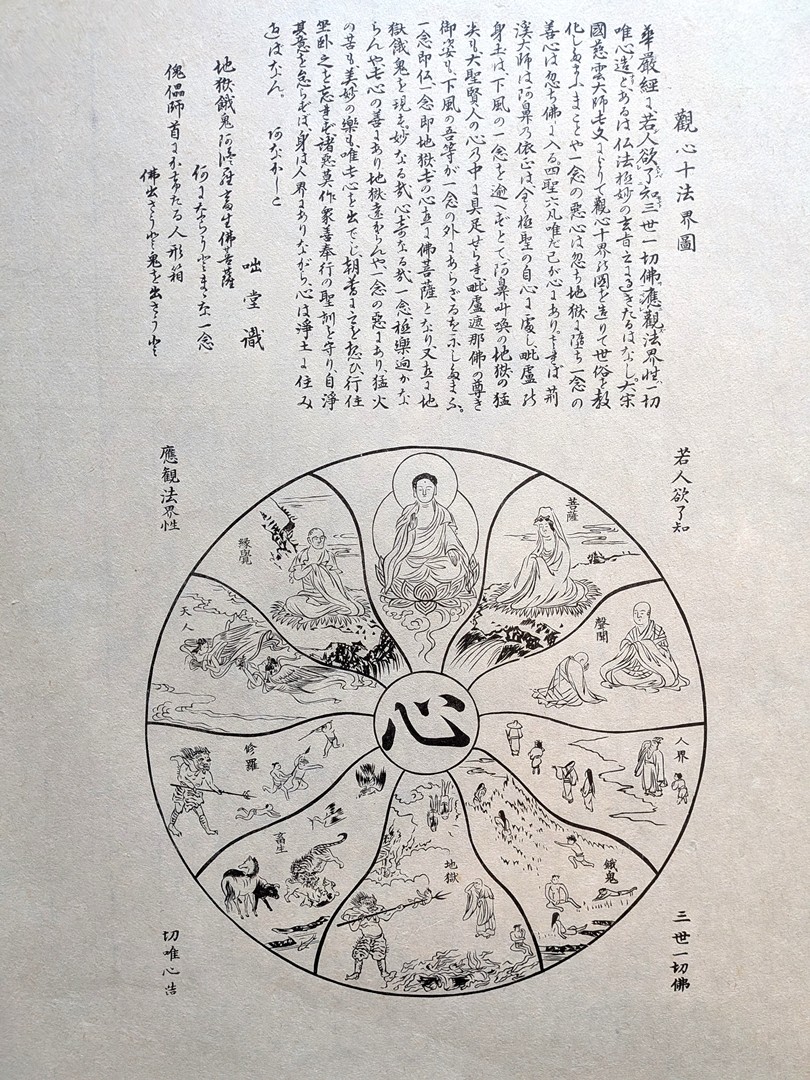 觀心十法界圖
華嚴經に若人欲了知三世一切佛應觀法界性一切
唯心造とあるは仏法極妙の玄旨之に過きたるはなし大宋
國慈雲大師此文によりて觀心十界の圖を造りて世俗を教
化し玉ふまことや一念の惡心は忽ち地獄に堕ち一念の
善心は忽ち佛に入る四聖六凡唯だ己が心にあり されば荊
溪大師は阿鼻の依正は全く極聖の自心に處し毗盧の
身土は下風の一念を逾へずとて阿鼻叫喚の地獄の猛
火も大聖賢人の心の中に具足せられ毗盧遮那佛の尊き
御姿も下風の吾等が一念の外にあらざるを示し玉ふ。
一念即仏一念即地獄 此の心直に佛菩薩となり又直に地
獄餓鬼を現す妙なる哉心 奇なる哉一念 極樂遠かな
らんや此心の善にあり地獄遠からんや一念の惡にあり、猛火
の苦も美妙の樂も唯此心を出でじ、朝暮に之を思ひ行住
坐臥之を忘れず諸惡莫作衆善奉行の聖訓を守り自淨
其意を怠らずば、身は人界にありながら、心は淨土に住み
ぬはなん。 あなかしこ
咄堂識
地獄餓鬼阿修羅畜生佛菩薩
何にならうとまゝな一念
傀儡師首にかけたる人形箱
佛出さうと鬼を出さうと
若人欲了知
三世一切佛
應觀法界性
切唯心造
菩薩
聲聞
人界
餓鬼
地獄
畜生
修羅
天人
緣覺
心